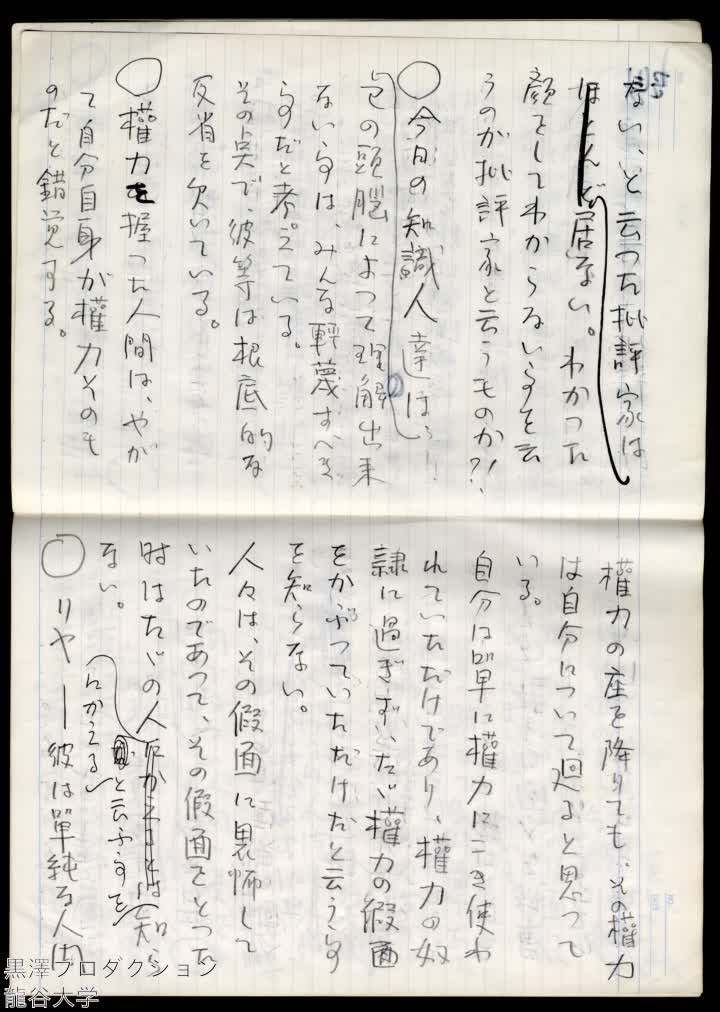 ないと云った批評家は
ほとんど居ない。わかった
顔をしてわからない事を云
うのが批評家と云うものか?!
○今日の知識人達は、
自己の頭脳によって理解出来
ない事は、みんな軽蔑すべき
事だと考えている。
その点で、彼等は根底的な
反省を欠いている。
○權力を握った人間は、やが
て自分自身が權力そのも
のだと錯覚する。
權力の座を降りても、その權力
は自分について廻ると思って
いる。
自分は單に權力にこき使わ
れていただけであり、權力の奴
隷に過ぎずいたゞ權力の假面
をかぶっていたゞけだと云う事
を知らない。
人々は、その假面に畏怖して
いたのであって、その假面をとった
時はたゞの人にかえると云ふ事を知ら
ない。
○リヤー彼は單純な人間
黒澤プロダクション
龍谷大学